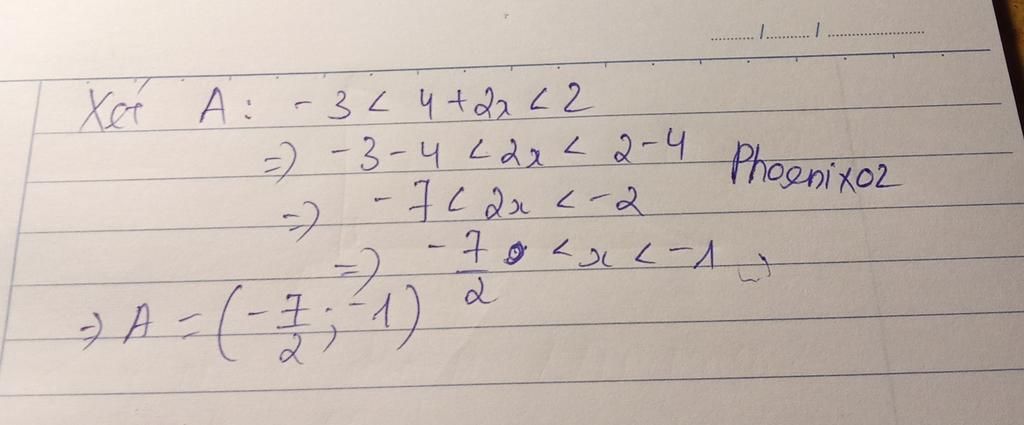 Xét A: -3 < 4+2x < 2
=) -3-4 < 2x < 2-4
Phoenix02
=) -7 < 2x < -2
=) -7/2 < x < -1
=) A = (-7/2; -1)